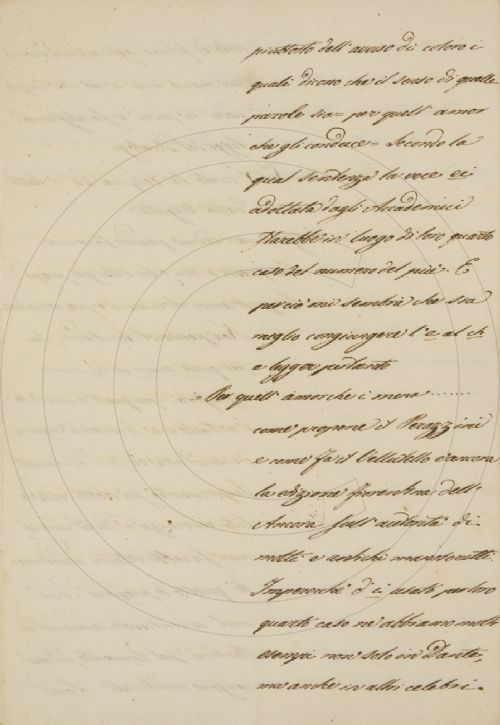 piuttosto dell' avviso di coloro i
quali dicono che il senso di quelle
parole sia = per quell' amor
che gli conduce = Secondo la
qual sentenza la voce ei
adottata dagli Accademici
starebbe in luogo di loro quarto
caso del numero del più. E
perciò mi sembra che sia
meglio congiungere l'e al ch
e legger pertanto
Per quell' amor che i mena .......
come propone il Perazzini
e come fa il Vellutello e ancora
la edizione fiorentina dell'
Ancora sull' autorità di
molti e antichi manoscritti.
Imperocchè d' i usato per loro
quarto caso ne abbiamo molti
esempi non solo in Dante,
ma anche in altri celebri